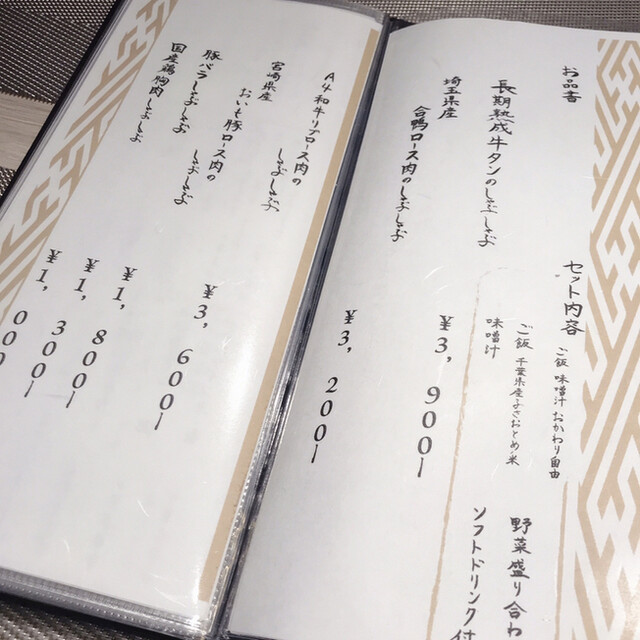 お品書
セット内容
ご飯 味噌汁 おかわり自由
ご飯 千葉県産ふさおとめ米
味噌汁
野菜盛り合わ
ソフトドリンク付
長期熟成牛タンのしゃぶしゃぶ
¥3,900ー
埼玉県産
合鴨ロース肉のしゃぶしゃぶ
¥3,200ー
A4和牛リブロース肉の
しゃぶしゃぶ
¥3,600ー
宮崎県産
おいも豚ロース肉の
しゃぶしゃぶ
¥1,800ー
豚バラしゃぶしゃぶ
¥1,300ー
国産鶏胸肉しゃぶしゃぶ
¥1,000